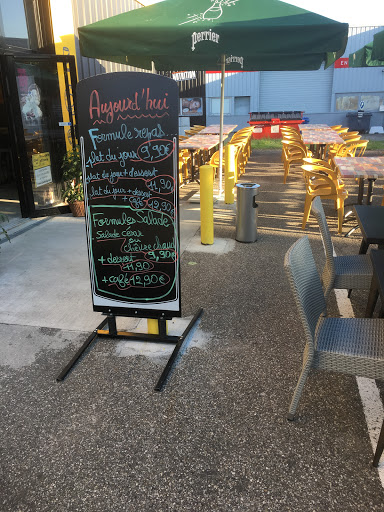 perrier
Aujourd'hui
Formule repas
plat du jour 9,90€
plat du jour + dessert
11,90
plat du jour + dessert
+ café 12,90€
Formules Salade
Salade César
ou
chèvre chaud
9,90€
+ dessert
11,90
+ café 12,90€